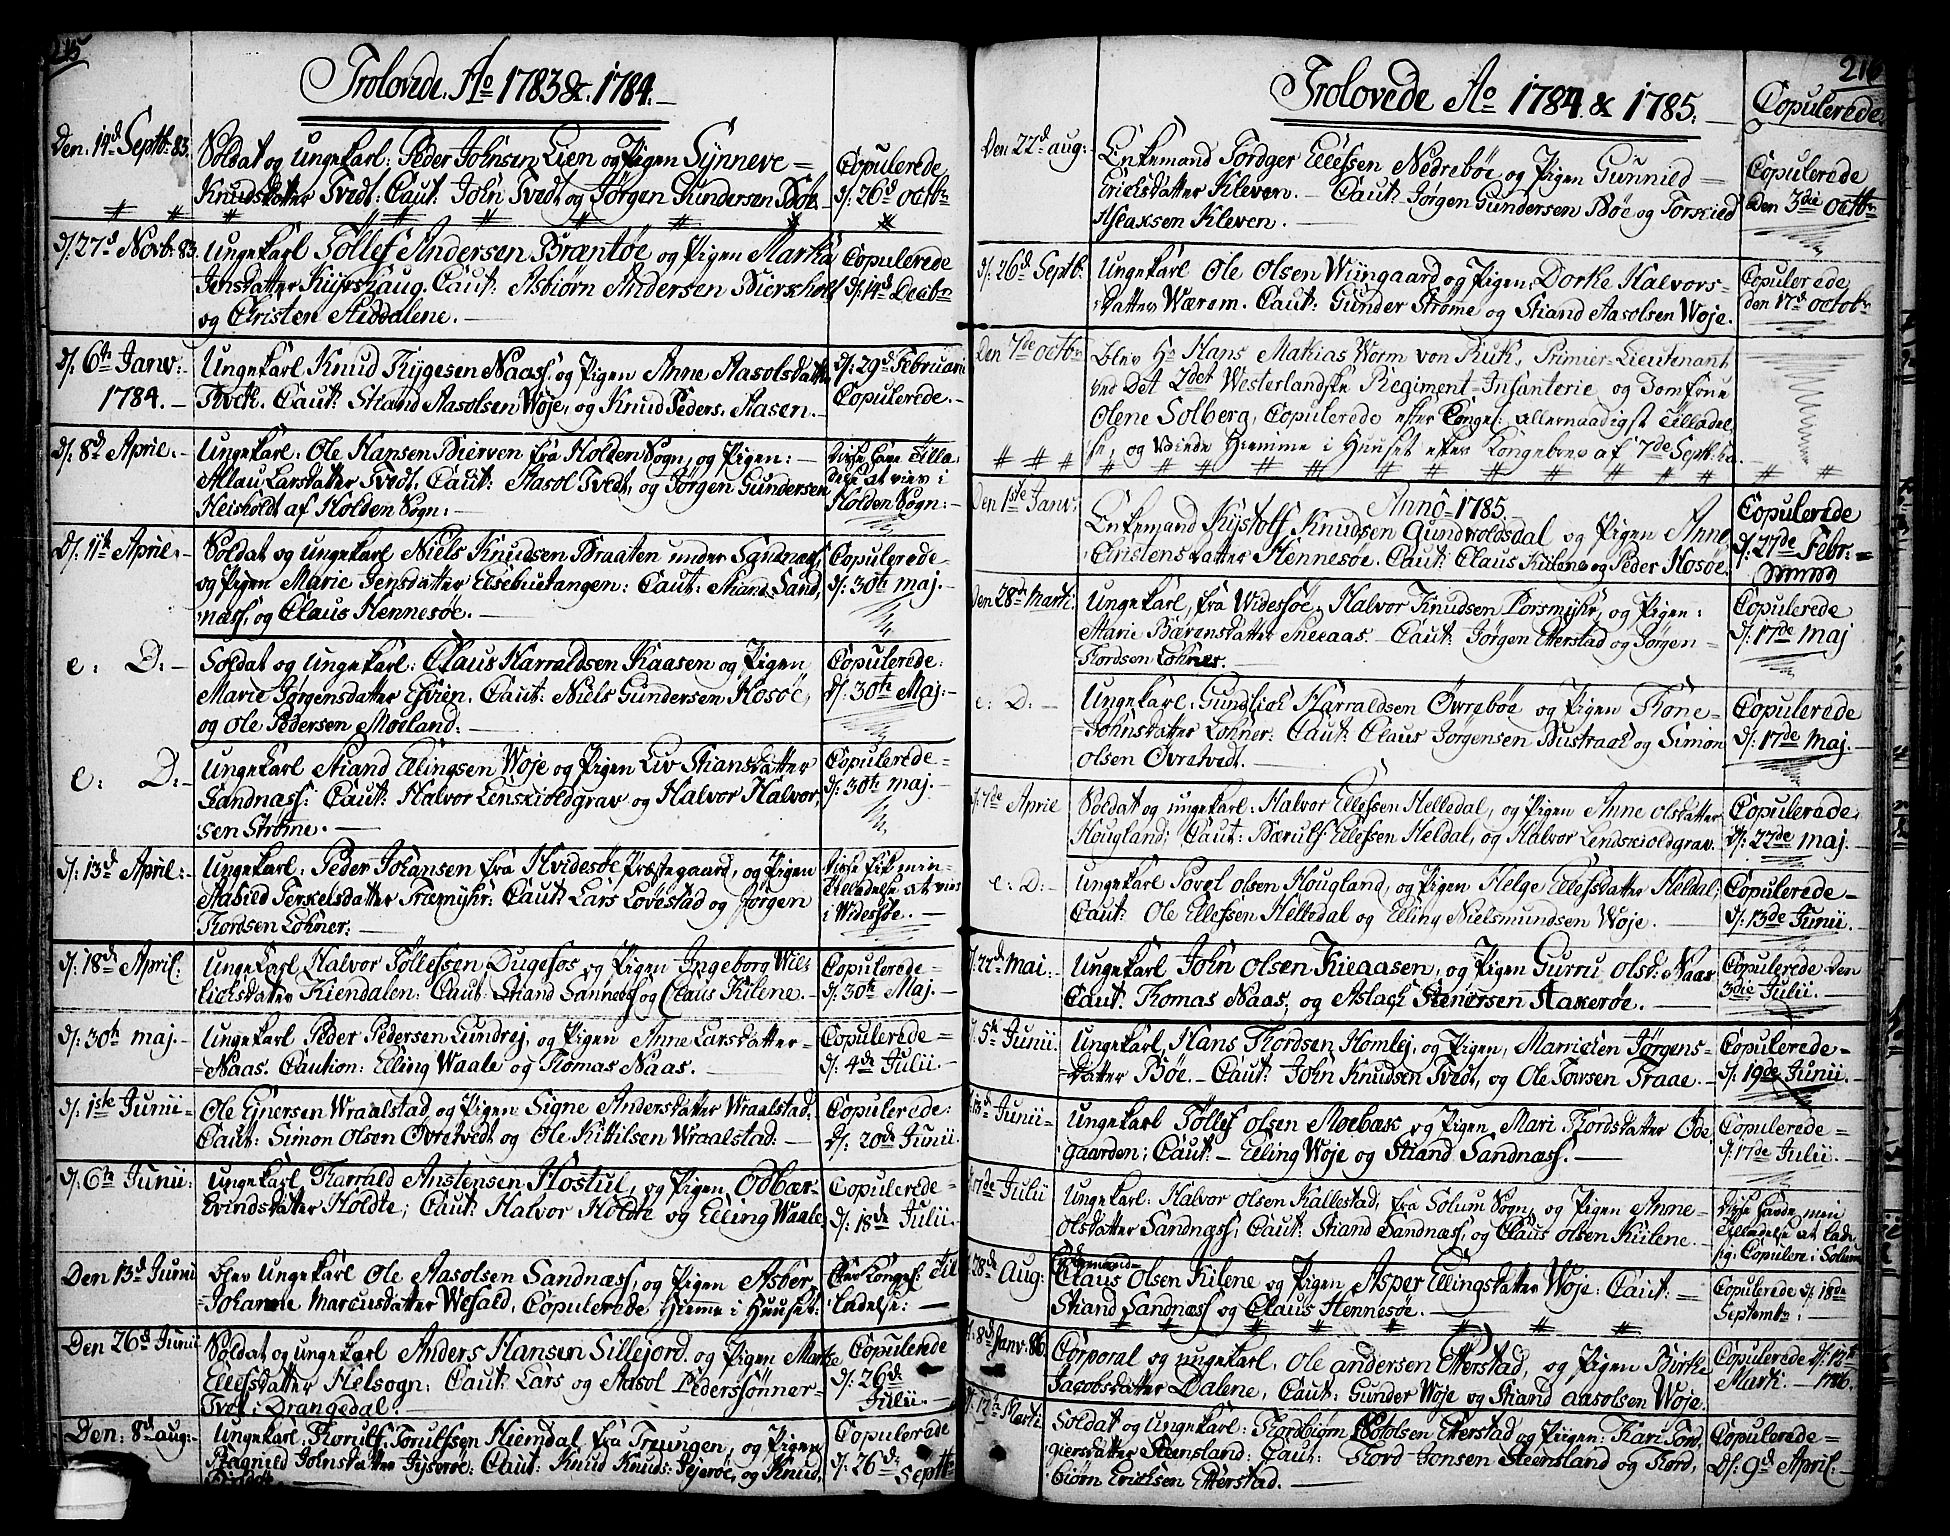 215
Trolovede. Ao 1783 &. 1784.
Den: 14d Septb: 83.
Soldat og Ungekarl: Peder Johnsen Lien og Pigen Synneve =
Knudsdatter Tvedt. Caut: John Tvedt og Jørgen Gundersen Bøe.
Copulerede
d/: 26d octbr
d/: 27d Novb: 83.
Ungekarl Tøllef Andersen Bræntøe og Pigen Martha
Jensdatter Caut: Asbiørn Andersen Bierskholt
og Christen Meddalene.
Copulerede
d/: 14d Decbr
d/. 6th Janv:
1784.
Ungekarl Knud Tygesen Naas, og Pigen Anne Aasolsdatter
Tvet. Caut: Strand Aasolsen Woje, og Knud Peders. Aasen.
d/: 29d Februarii
Copulerede.
d/: 8d April:
Ungekarl: Ole Hansen Bierven fra Holden Sogn, og Pigen:
Allau Larsdatter Tvedt. Caut: Aasol Tvedt, og Jørgen Gundersen
Heisholt af Holden Sogn:
Disse have Tilla-
delse at vies i
Holden Sogn:
D/. 11th April.
Soldat og Ungekarl Niels Knudsen Braaten under Sandnæs,
og Pigen Marie Jensdatter Elsebutangen: Caut: Strand Sand,
næss, og Claus Hennesøe.
Copulerede
d/: 30th maj.
e: D:
Soldat og Ungekarl: Claus Harraldsen Kaasen og Pigen
Marie Jørgensdatter Esvien. Caut: Niels Gundersen Hosøe,
og Ole Pedersen Moeland:
Copulerede:
d/: 30th Maj:
e: D:
Ungekarl Strand Ellingsen Woje og Pigen Liv Stiansdatter
Sandnæss: Caut: Halvor Lenskioldgrav og Halvor Halvor,
sen Strøme.
Copulerede
d/: 30th maj.
d/: 13d April:
Ungekarl: Peder Johansen fra Hvidesøe Præstegaard, og Pigen
Aasild Terkelsdatter Træmyhr: Caut: Lars Lovestad og Jørgen
Tordsen Lohner:
Disse fik min
Tilladelse at vies
i Widesøe.
d/: 18de April:
Ungekarl Halvor Tøllefsen Dugesøs og Pigen Ingeborg Wil=
Kiendalen: Caut: Strand Sannæss og Claus Kilene.
Copulerede
d/: 30th Maj.
d/: 30th maj.
Ungekarl Peder Pedersen Lundrej, og Pigen Anne Larsdatter
Naas. Caution: Elling Waale og Thomas Naas.
Copulerede
d/: 4de Julii.
d/: 1ste Junii
Ole Ejnersen Wraalstad, og Pigen Signe Andersdatter Wraalstad.
Caut: Simon Olsen Øvretvedt og Ole Kittilsen Wraalstad:
Copulerede:
D/: 20de Junii
d/: 6th Junii:
Ungekarl Harrald Anstensen Hostul, og Pigen Odbær
Evindsdatter Holdte; Caut: Halvor Holdte og Elling Waale
Copulerede
d/: 18de Julii.
Den 13d Junii
blev Ungekarl Ole Aasolsen Sandnæss, og Pigen Asber,
Johanne Marcusdatter Wefald, Copulerede Hiemme i Huuset:
efter Kongel: Til
ladelse:
Den 26d Junii
Soldat og Ungekarl Anders Hansen Sillejord og Pigen Marthe
Ellefsdatter Helsogn: Caut: Lars og Aasol Pederssønner
Tvet i Drangedal.
Copulerede
d/: 26de
Julii.
Den: 8d aug:
Ungekarl: Thorulf Torulfsen Hiemdal fra Treungen, og Pigen
Ragnild Johnsdatter Jyserøe: Caut: Knud Knuds: Jejerøe, og Knud,
Copulerede
d/: 26de
Septbr
216
Trolovede Ao 1784 & 1785.
Copulerede.
Den 22d aug:
Enkemand Tordger Ellefsen Nedrebøe og Pigen Gunnild =
Erichsdatter Kleven. Caut: Jørgen Gundersen Bøe og Torskield
Aslaxsen Kleven.
Copulerede
Den 3die octbr
d/: 26d Septb.
Ungekarl Ole Olsen Wiingaard og Pigen Dorthe Halvors-
datter Wærem. Caut: Gunder Strøme og Strand Aasolsen Woje.
Copulerede
den 17d octobr
Den 7de octbr
blev Hr Hans Mathias Worm von Kuk, Primier-Lieutenant
ved Det 2det Westerlandske Regiment-Infanterie og Jomfrue
Olene Solberg, Copulerede efter Kongel: allernaadigst Tilladel,
se, og viede Hiemme i Huuset efter Kongebrev af 7de Septb:
Anno 1785.
Den 1ste Janv:
Enkemand Kystolf Knudsen Gundvoldsdal og Pigen Anne
Christensdatter Hennesøe. Caut: Claus Kilene og Peder Hosøe.
Copulerede
d/. 27de Febr:
Den 28de Marti:
Ungekarl, fra Widesøe, Halvor Knudsen Porsmyhr, og Pigen:
Marie Bærensdatter Sneeaas. Caut: Jørgen Etterstad og Jørgen
Tordsen Lohner.
Copulerede
d/. 17de Maj
e: D:
Ungekarl: Gundlich Harraldsen Øvrebøe og Pigen Thone
Johnsdatter Lohner: Caut: Claus Jørgensen Bustrack og Simon
olsen Øvretvedt.
Copulerede
d/: 17de Maj.
d/: 7de Aprie
Soldat og ungekarl: Halvor Ellefsen Helledal, og Pigen Anne olsdatter
Hougland; Caut: Bærulf Ellefsen Heldal, og Halvor Lendskioldgrav.
Copulerede,
d/: 27de maj.
e: D:
Ungekarl Povel olsen Hougland, og Pigen Helge Ellefsdatter Heldal;
Caut: Ole Ellefsen Helledal og Elling Nielsmundsen Woje.
Copulerede
d/: 13de Junii.
d/: 22d Mai:
Ungekarl John olsen Kieaasen, og Pigen Gurru olsd: Naas
Caut: Thomas Naas, og Aslach Stenersen Aakerøe.
Copulerede Den
3die Julii.
d/. 5th Junii.
Ungekarl, Hans Thordsen Homlej, og Pigen, Marrichen Jørgens-
datter Bøe. Caut: John Knudsen Tvedt, og Ole Towsen Traae.
Copulerede
d/. 19de Junii.
d/. 13d Junii
Ungekarl Tøllef olsen Moebæk og Pigen Mari Thordsdatter Øde,
gaarden; Caut Elling Woje og Strand Sandnæss.
Copulerede
d/: 17de Julii.
d/. 17de Julii
Ungekarl: Halvor olsen Kallestad, fra Solum Sogn, og Pigen Anne
olsdatter Sandnæss, Caut: Strand Sandnæss, og Claus olsen Kiilene.
Disse havde min
Tilladelse at lade
sig Copulere i Solum
d/. 28de Aug:
Enkemand
Claus Olsen Kilene og Pigen Asper Ellingsdatter Woje: Caut:
Strand Sandnæss og Claus Hennesøe.
Copulerede d/ 18de
Septembr:
d/. 8d Janv: 86
Corporal og ungekarl, Ole andersen Etterstad, og Pigen Birthe
Jacobsdatter Dalene, Caut: Gunder Woje og Strand Aasolsen Woje.
Copulerede d/: 12te
Marti. 1786.
d/. 12te Marti.
Soldat og Ungekarl: Thordbiørn Botolsen Etterstad og Pigen: Kari Tord,
giersdatter Steensland: Caut: Thord Jonsen Steensland og Thord,
biørn Ericksen Etterstad.
Copulerede
D/: 9d April: